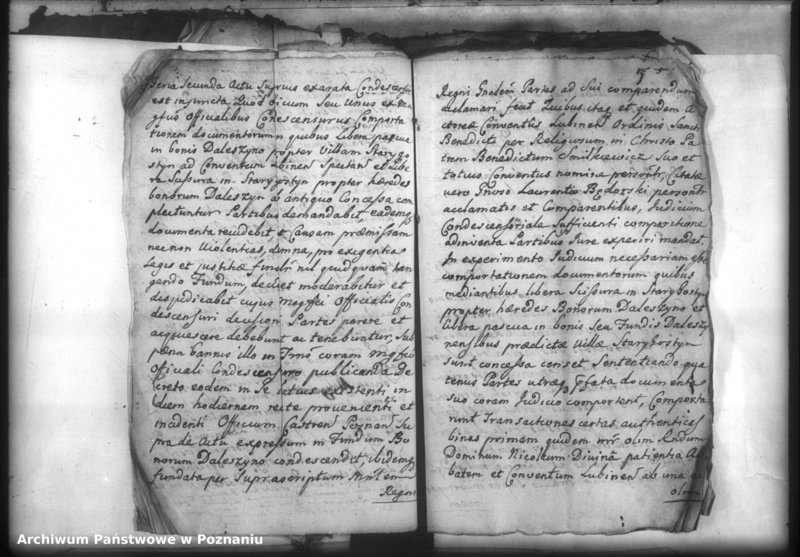 Feria Secunda Actu Superius exarata Condescensio
est injuncta Quod Officium Seu Unus ex
gficis Officialibus Condescensurus Comporta
tionem documentorum quibus Libera pascua
in bonis Daleszyno propter Villam Starygo
styn ad Conventum Lubinen Spectan et Libe
ra Sussura in Starygostyn propter hæredes
bonorum Daleszyn ab antiquo Concessa com
plectuntur Partibus demandabit eademq
documenta revidebit et Causam præmissam
nec non Violentias, damna, pro exigentia
Legis et justitiæ fundi nil quidquam tan
gendo Fundum, decidet moderabitur et
dijudicabit cujus Magfici Officialis Con
descensuri decision Partes parere et
acquiescere debebunt ac tenebuntur, Sub
pæna bannis illo in Trno coram Mgfico
Officiali Condescensuro publicanda De
creto eodem in Se latius existenti in
diem hodiernam recte provenienti et
incidenti Officium Castren Posnan Su
pra de Actu expressum in Fundum Bo
norum Daleszyno condescendit, ibidemq
fundata per Supra scriptum
Regni
5
Regni Gnalem Partes ad Sui comparendum
aclamari fecit Quibus itaq et quidem A
ctorea Conventus Lubinen Ordinis Sancti
Benedicti per Religiosum in Christo Pa
trem Benedictum Smitkiewicz Suo et
totius Conventus nomine personte, Citata
vero Gnoso Laurentio Będorski personte
acclamatis et Comparentibus, Judicium
Condescensoriale Sufficienti comparitione
adinventa Partibus Jure experiri mandat.
In experimento Judicium necessariam esse
comportationem documentorum quibus
mediantibus libera Scissura in Starygostyn
propter hæredes Bonorum Daleszyno et
libera pascua in bonis Seu Fundis Daleszy
nensibus prædictæ Villæ Starygostyn
sunt concessa censet Sententiando qua
tenus Partes utræq Pfata documenta
suo coram Judicio comportent, Comporta
runt Transactiones certas authenticas
binas primam quidem inter olim Rndum
Dominum Nicoleum Divina patientia Ab
batem et Conventum Lubinen ab una ac
olim
Archiwum Państwowe w Poznaniu